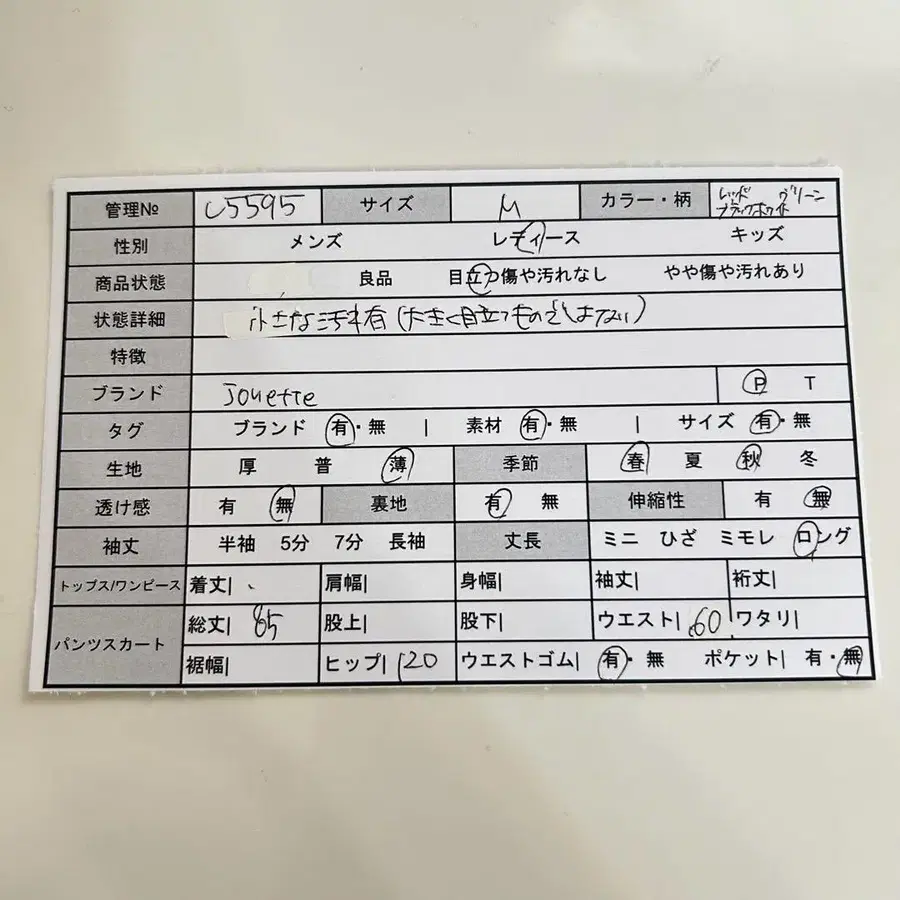 管理№ U5595 サイズ M カラー・柄 レッド グリーン ブラックホワイト
性別 メンズ レディース キッズ
商品状態 良品 目立つ傷や汚れなし やや傷や汚れあり
状態詳細 小さな汚れ有(大きく目立つものではない)
特徴
ブランド Jouette P T
タグ ブランド 有・無 | 素材 有・無 | サイズ 有・無
生地 厚 普 薄 季節 春 夏 秋 冬
透け感 有 無 裏地 有 無 伸縮性 有 無
袖丈 半袖 5分 7分 長袖 丈長 ミニ ひざ ミモレ ロング
トップス/ワンピース 着丈| 肩幅| 身幅| 袖丈| 裄丈|
パンツスカート 総丈| 85 股上| 股下| ウエスト| 60 ワタリ|
裾幅| ヒップ| 120 ウエストゴム| 有・無 ポケット| 有・無